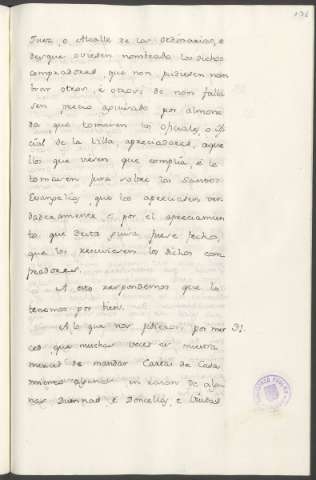 136
Juez, o Alcalle de las ordenarias, e
desque oviesen nombrado los dichos
compradores, que non pudiesen nom
brar otros, é otrosi de non falla
sen precio aguisado por almone
da que tomasen los oficiales, o ofi
cial de la Villa, apreciadores, aque
llos que vieren que complia, é le
tomasen jura sobre los Santos
Evangelios, que los apreciasen ver
daderamente, é por el apreciamien
to que desta guisa fuese fecho,
que los resciviesen los dichos com
pradores.
A esto respondemos que lo
tenemos por bien.
A lo que nos pidieron por mer
ced, que muchas veces es nuestra
merced de mandar Cartas de Casa
mientos en razon de algu
nas Duennas e Doncellas, e Viudas